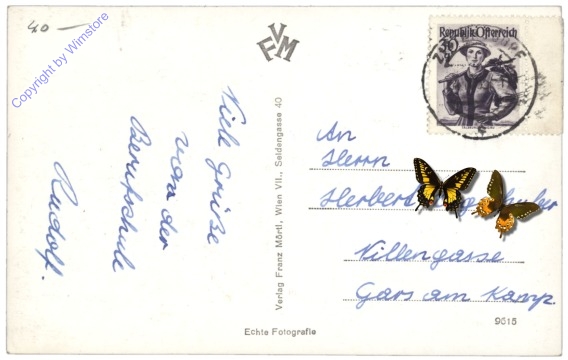 40 –
Copyright by Wimstore
Viele Grüße
von der
Berufschule
Rudolf.
VFM
Verlag Franz Mörtl, Wien VII., Seidengasse 40
Republik Österreich
An
Herrn
Herbert
Villengasse
Gars am Kamp.
9615
Echte Fotografie